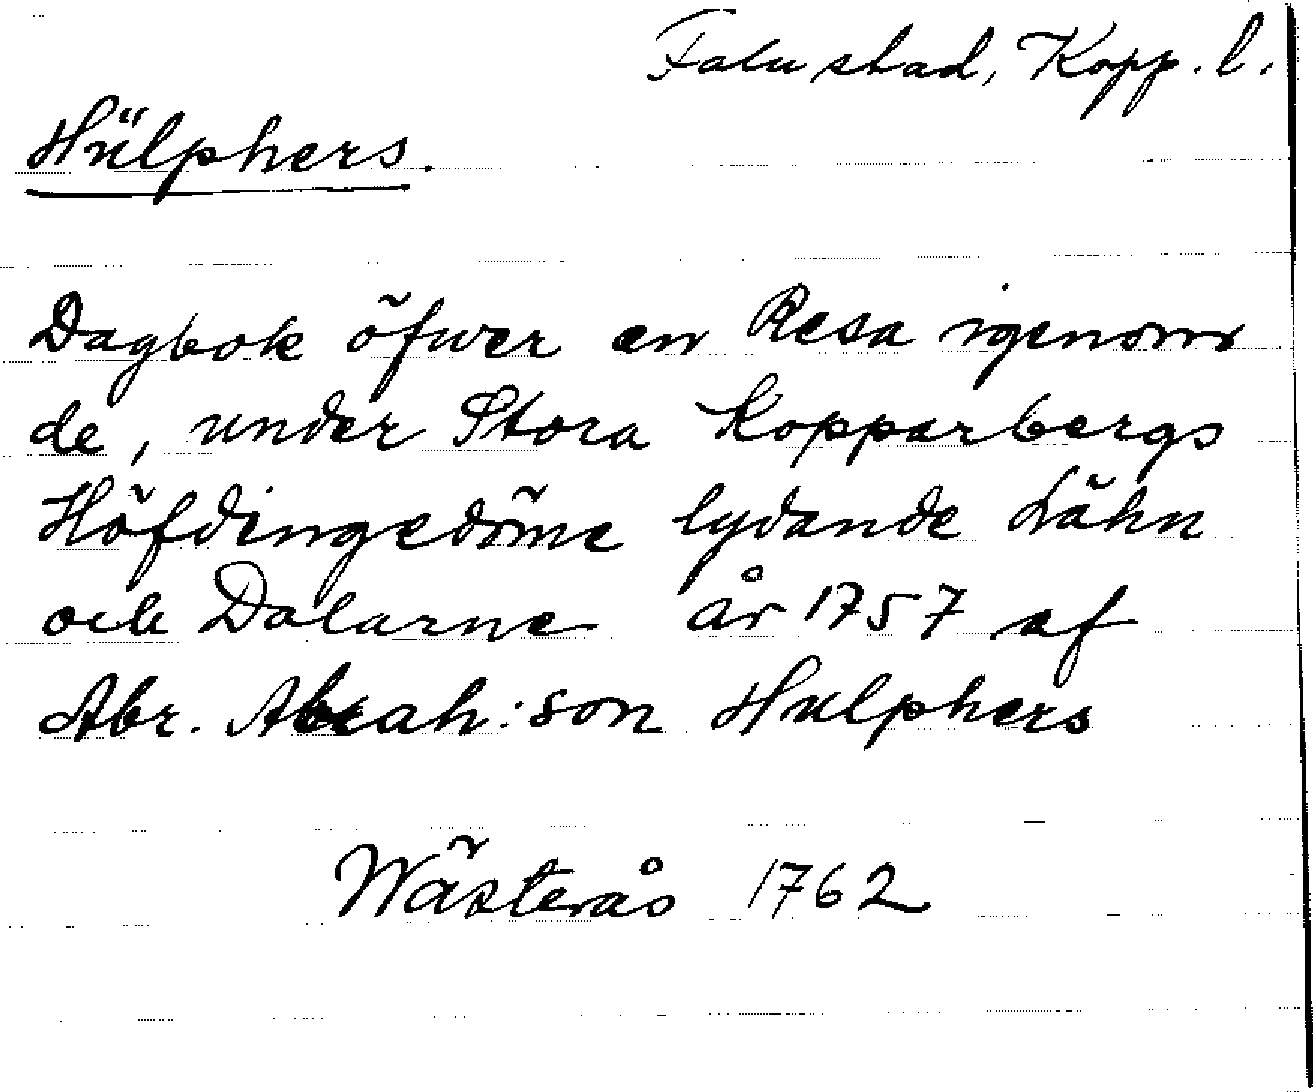 Falu stad, Kopp. l.
Hülphers.
Dagbok öfwer en Resa igenom
de, under Stora Kopparbergs
Höfdingedöme lydande Lähn
och Dalarne år 1757 af
Abr. Abrah:son Hulphers
Wästerås 1762